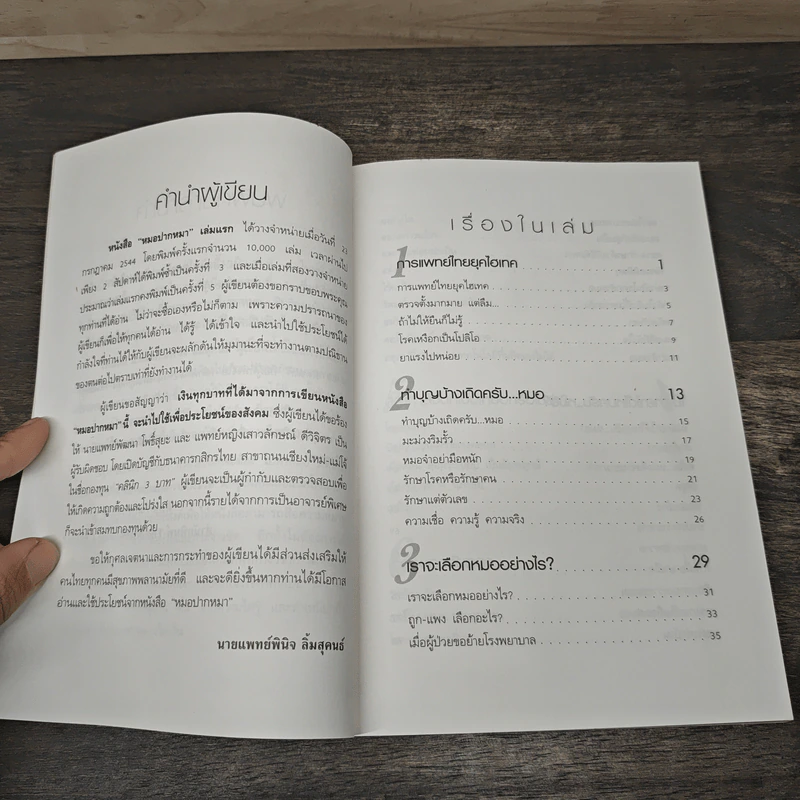 คำนำผู้เขียน
หนังสือ "หมอปากหมา" เล่มแรก ได้วางจำหน่ายเมื่อวันที่ 23
กรกฎาคม 2544 โดยพิมพ์ครั้งแรกจำนวน 10,000 เล่ม เวลาผ่านไป
เพียง 2 สัปดาห์ได้พิมพ์ซ้ำเป็นครั้งที่ 3 และเมื่อเล่มที่สองวางจำหน่าย
ประมาณว่าเล่มแรกคงพิมพ์เป็นครั้งที่ 5 ผู้เขียนต้องขอกราบขอบพระคุณ
ทุกท่านที่ได้อ่าน ไม่ว่าจะซื้อเองหรือไม่ก็ตาม เพราะความปรารถนาของ
ผู้เขียนก็เพื่อให้ทุกคนได้อ่าน ได้รู้ ได้เข้าใจ และนำไปใช้ประโยชน์ได้
กำลังใจที่ท่านได้ให้กับผู้เขียนจะผลักดันให้มุมานะที่จะทำงานตามปณิธาน
ของตนต่อไปตราบเท่าที่ยังทำงานได้
ผู้เขียนขอสัญญาว่า เงินทุกบาทที่ได้มาจากการเขียนหนังสือ
"หมอปากหมา" นี้ จะนำไปใช้เพื่อประโยชน์ของสังคม ซึ่งผู้เขียนได้ขอร้อง
ให้ นายแพทย์พัฒนา โพธิ์สุยะ และ แพทย์หญิงเสาวลักษณ์ ดีวิจิตร เป็น
ผู้รับผิดชอบ โดยเปิดบัญชีกับธนาคารกสิกรไทย สาขาถนนเชียงใหม่-แม่โจ้
ในชื่อกองทุน "คลินิก 3 บาท" ผู้เขียนจะเป็นผู้กำกับและตรวจสอบเพื่อ
ให้เกิดความถูกต้องและโปร่งใส นอกจากนี้รายได้จากการเป็นอาจารย์พิเศษ
ก็จะนำเข้าสมทบกองทุนด้วย
ขอให้กุศลเจตนาและการกระทำของผู้เขียนได้มีส่วนส่งเสริมให้
คนไทยทุกคนมีสุขภาพพลานามัยที่ดี และจะดียิ่งขึ้นหากท่านได้มีโอกาส
อ่านและใช้ประโยชน์จากหนังสือ "หมอปากหมา"
นายแพทย์พินิจ ลิ้มสุคนธ์
เรื่องในเล่ม
1 การแพทย์ไทยยุคไฮเทค 1
การแพทย์ไทยยุคไฮเทค 3
ตรวจตั้งมากมาย แต่ลืม... 5
ถ้าไม่ให้ยืนก็ไม่รู้ 7
โรคเหงือกเป็นโปลิโอ 9
ยาแรงไปหน่อย 11
2 ทำบุญบ้างเถิดครับ...หมอ 13
ทำบุญบ้างเถิดครับ...หมอ 15
มะม่วงริมรั้ว 17
หมอจำอย่ามือหนัก 19
รักษาโรคหรือรักษาคน 21
รักษาแต่ตัวเลข 23
ความเชื่อ ความรู้ ความจริง 26
3 เราจะเลือกหมออย่างไร? 29
เราจะเลือกหมออย่างไร? 31
ถูก-แพง เลือกอะไร? 33
เมื่อผู้ป่วยขอย้ายโรงพยาบาล 35